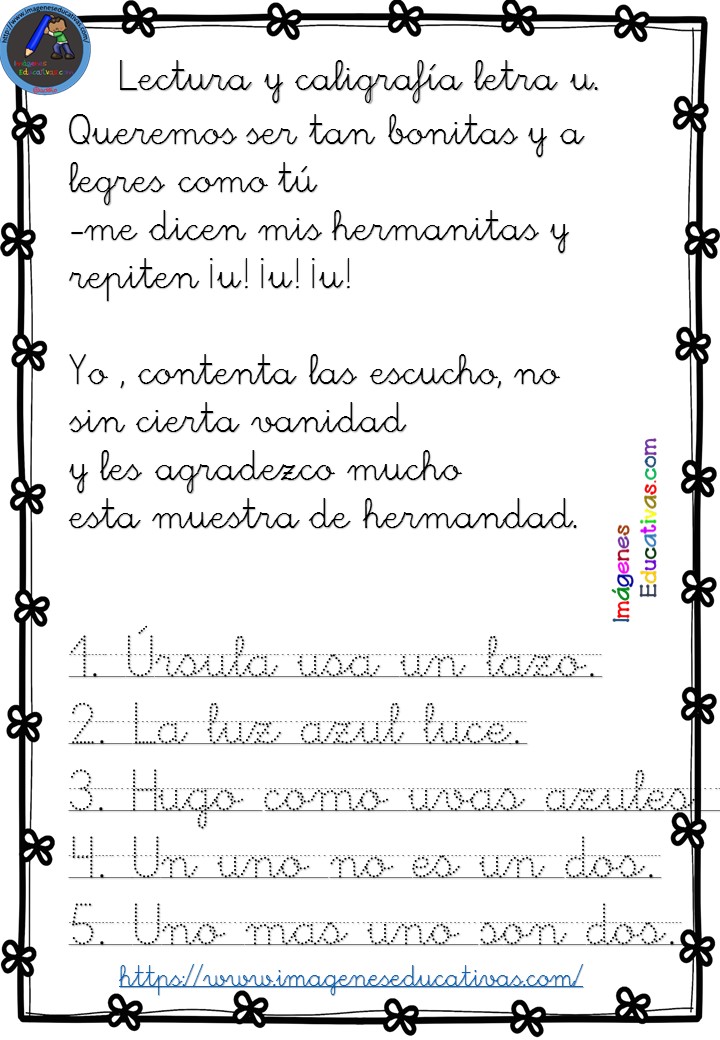 http://www.imageneseducativas.com/
Imágenes
Educativas.com
Lectura y caligrafía letra u.
Queremos ser tan bonitas y a
legres como tú
-me dicen mis hermanitas y
repiten ¡u! ¡u! ¡u!
Yo , contenta las escucho, no
sin cierta vanidad
y les agradezco mucho
esta muestra de hermandad.
Imágenes
Educativas.com
1. Úrsula usa un lazo.
2. La luz azul luce.
3. Hugo como uvas azules
4. Un uno no es un dos.
5. Uno mas uno son dos.
https://www.imageneseducativas.com/